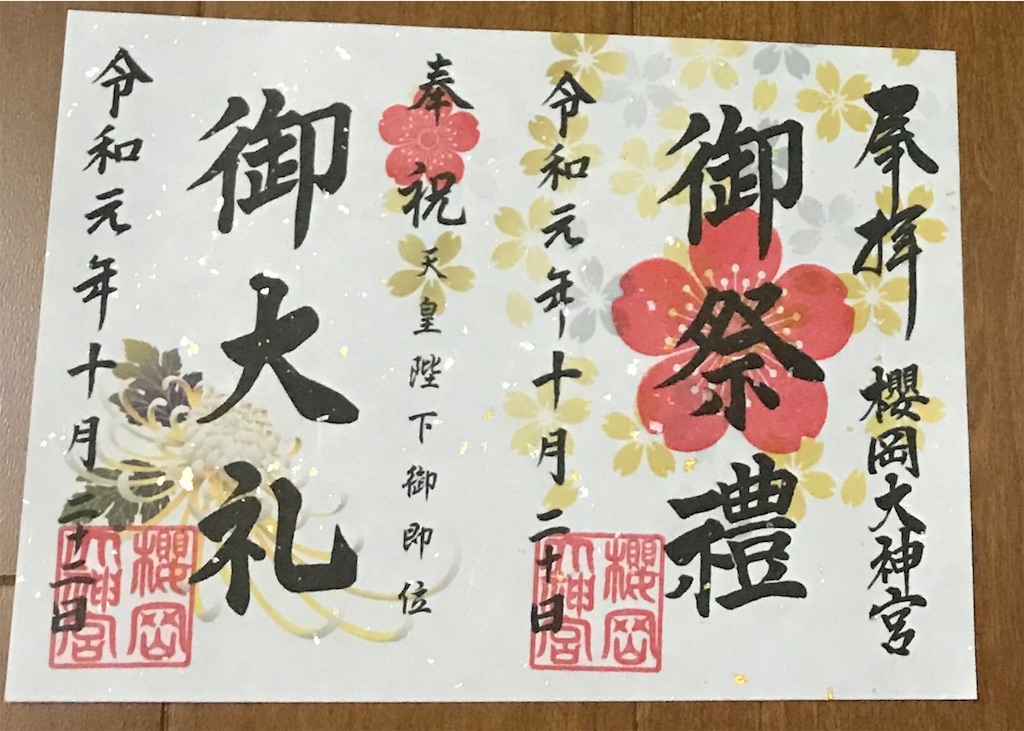 奉拝
櫻岡大神宮
御祭禮
令和元年十月二十日
櫻岡
大神宮
奉祝
天皇陛下御即位
御大礼
令和元年十月二十二日
櫻岡
大神宮